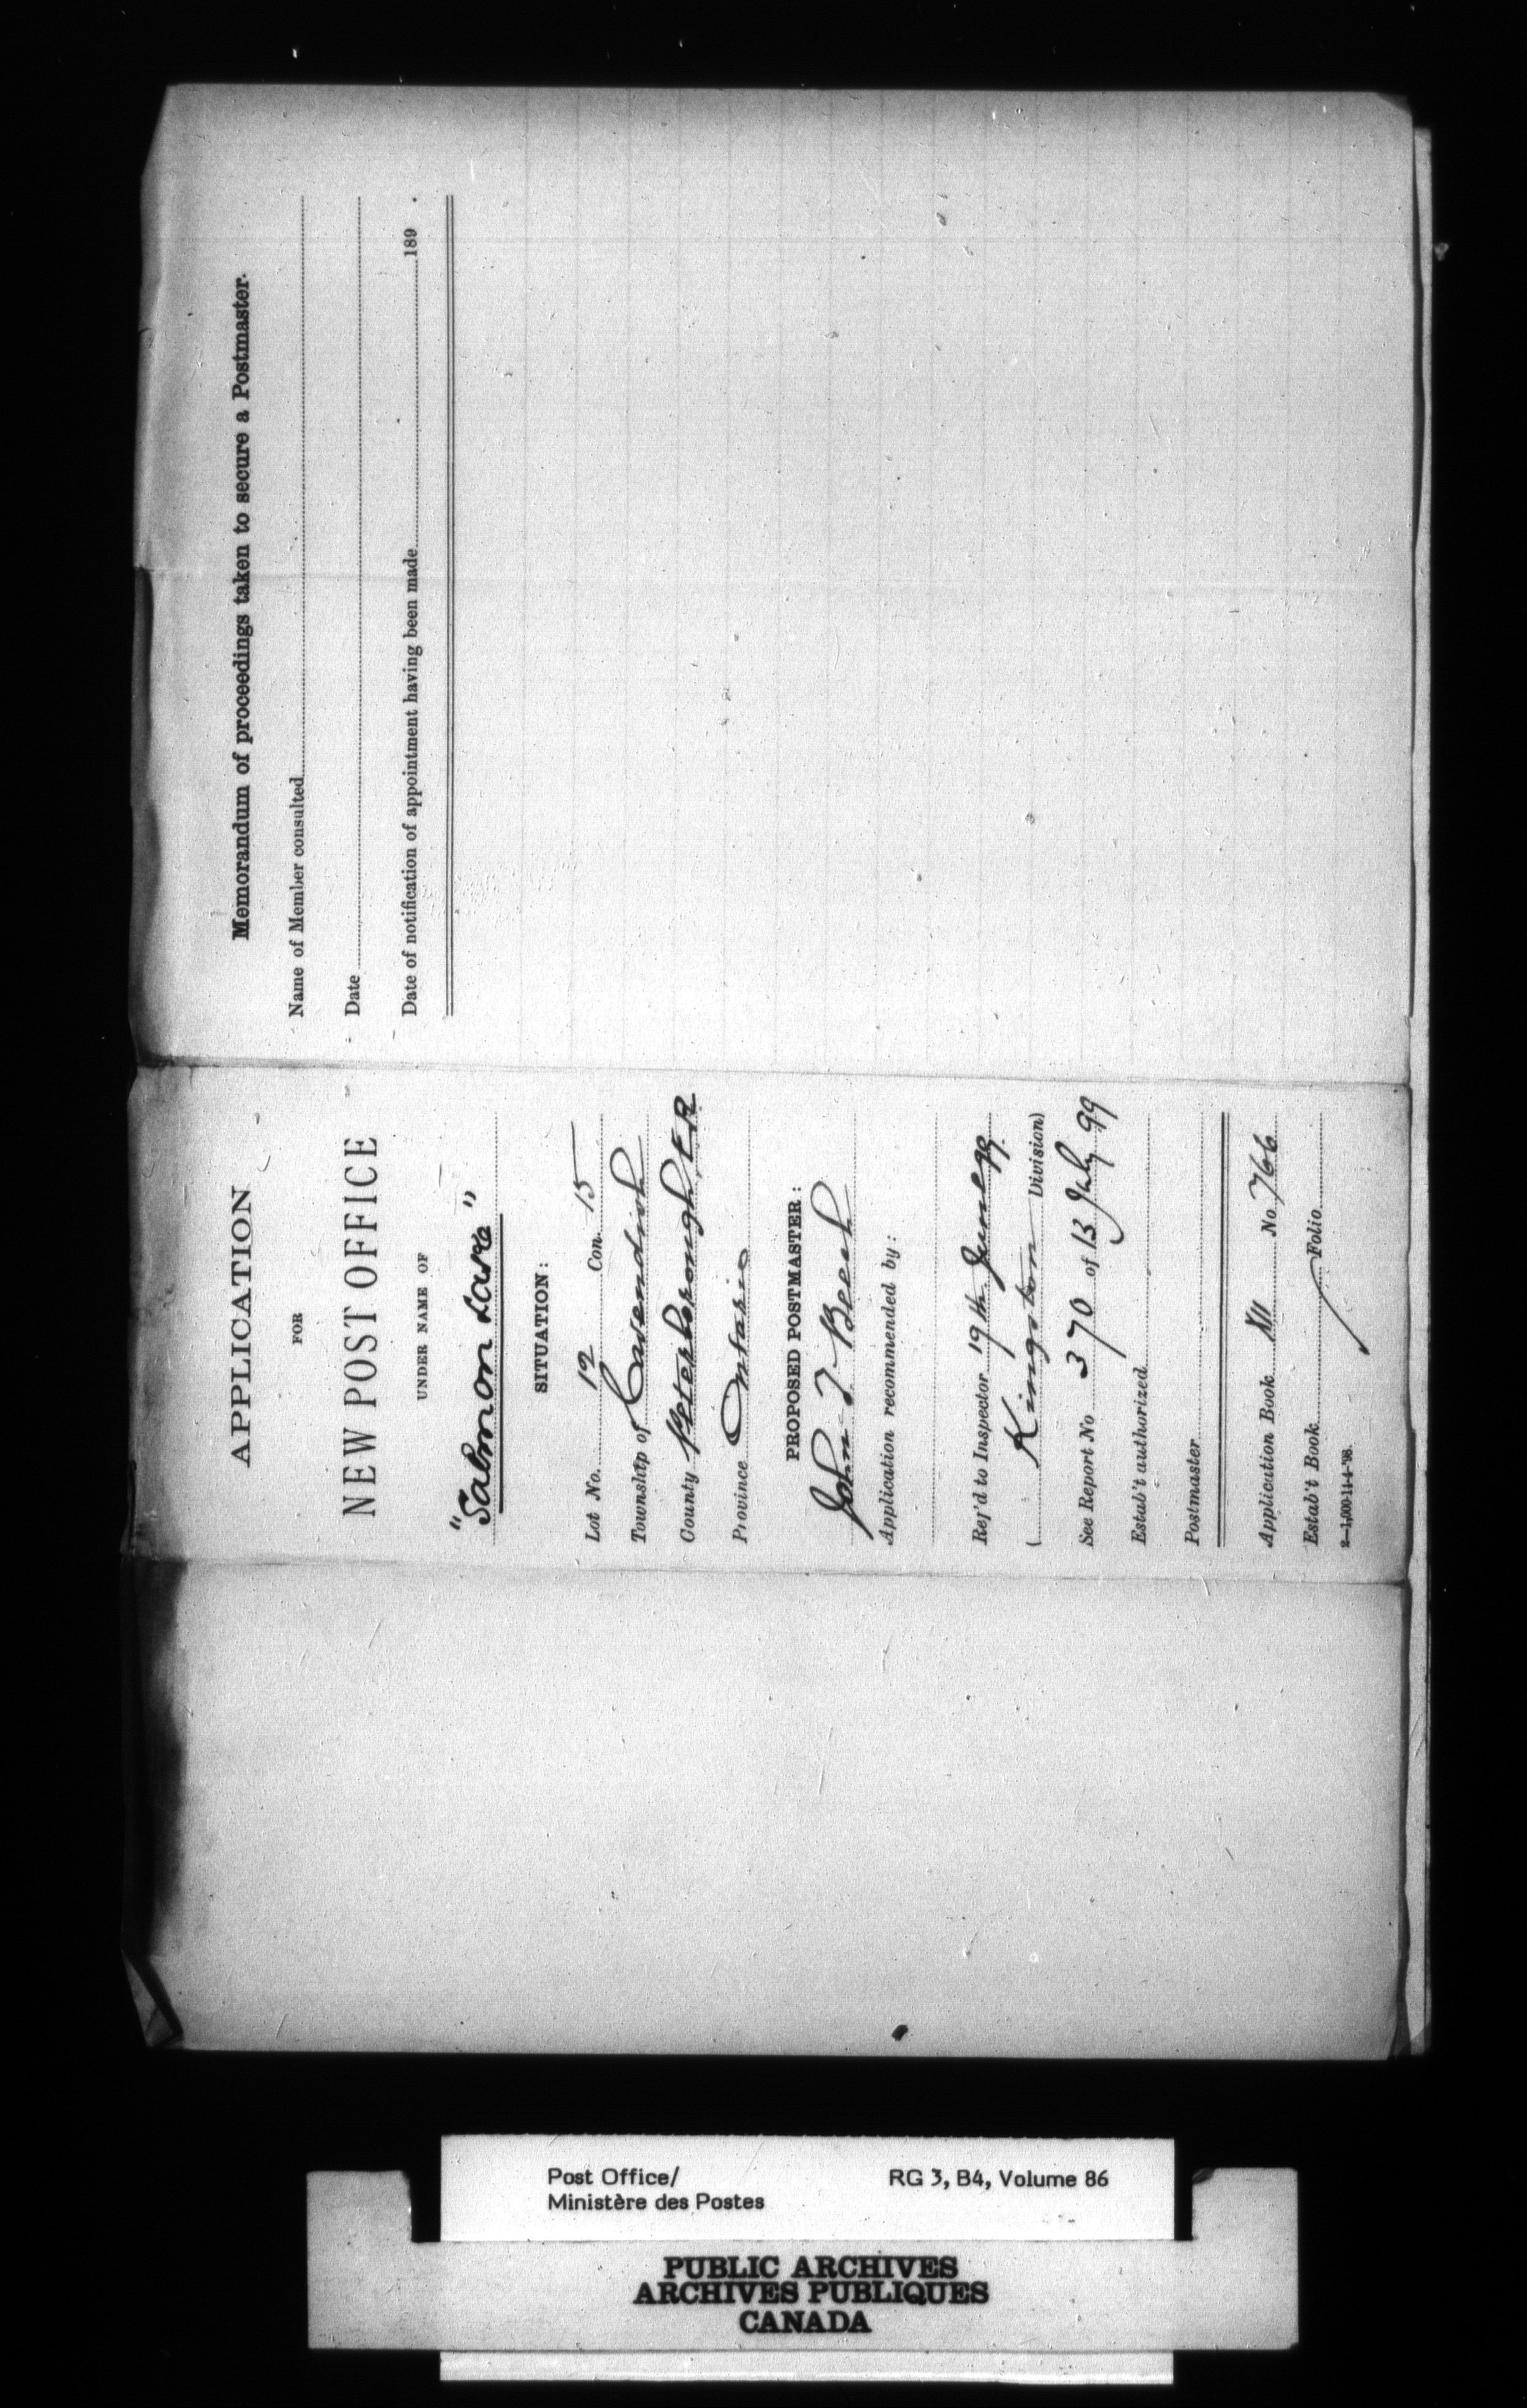 Memorandum of proceedings taken to secure a Postmaster.
Name of Member consulted
Date
Date of notification of appointment having been made 189 .
APPLICATION
FOR
NEW POST OFFICE
UNDER NAME OF
"Salmon Lake"
SITUATION:
Lot No. 12 Con. 15
Township of Cavendish
County Peterborough, E.R
Province Ontario
PROPOSED POSTMASTER:
John T. Beech
Application recommended by:
Ref'd to Inspector 19th June 99.
(Kingston Division)
See Report No 370 of 13 July 99
Estab't authorized
Postmaster
Application Book XII No. 766
Estab't Book Folio
2—1,000-11-4-'98.
Post Office/
Ministère des Postes
RG 3, B4, Volume 86
PUBLIC ARCHIVES
ARCHIVES PUBLIQUES
CANADA